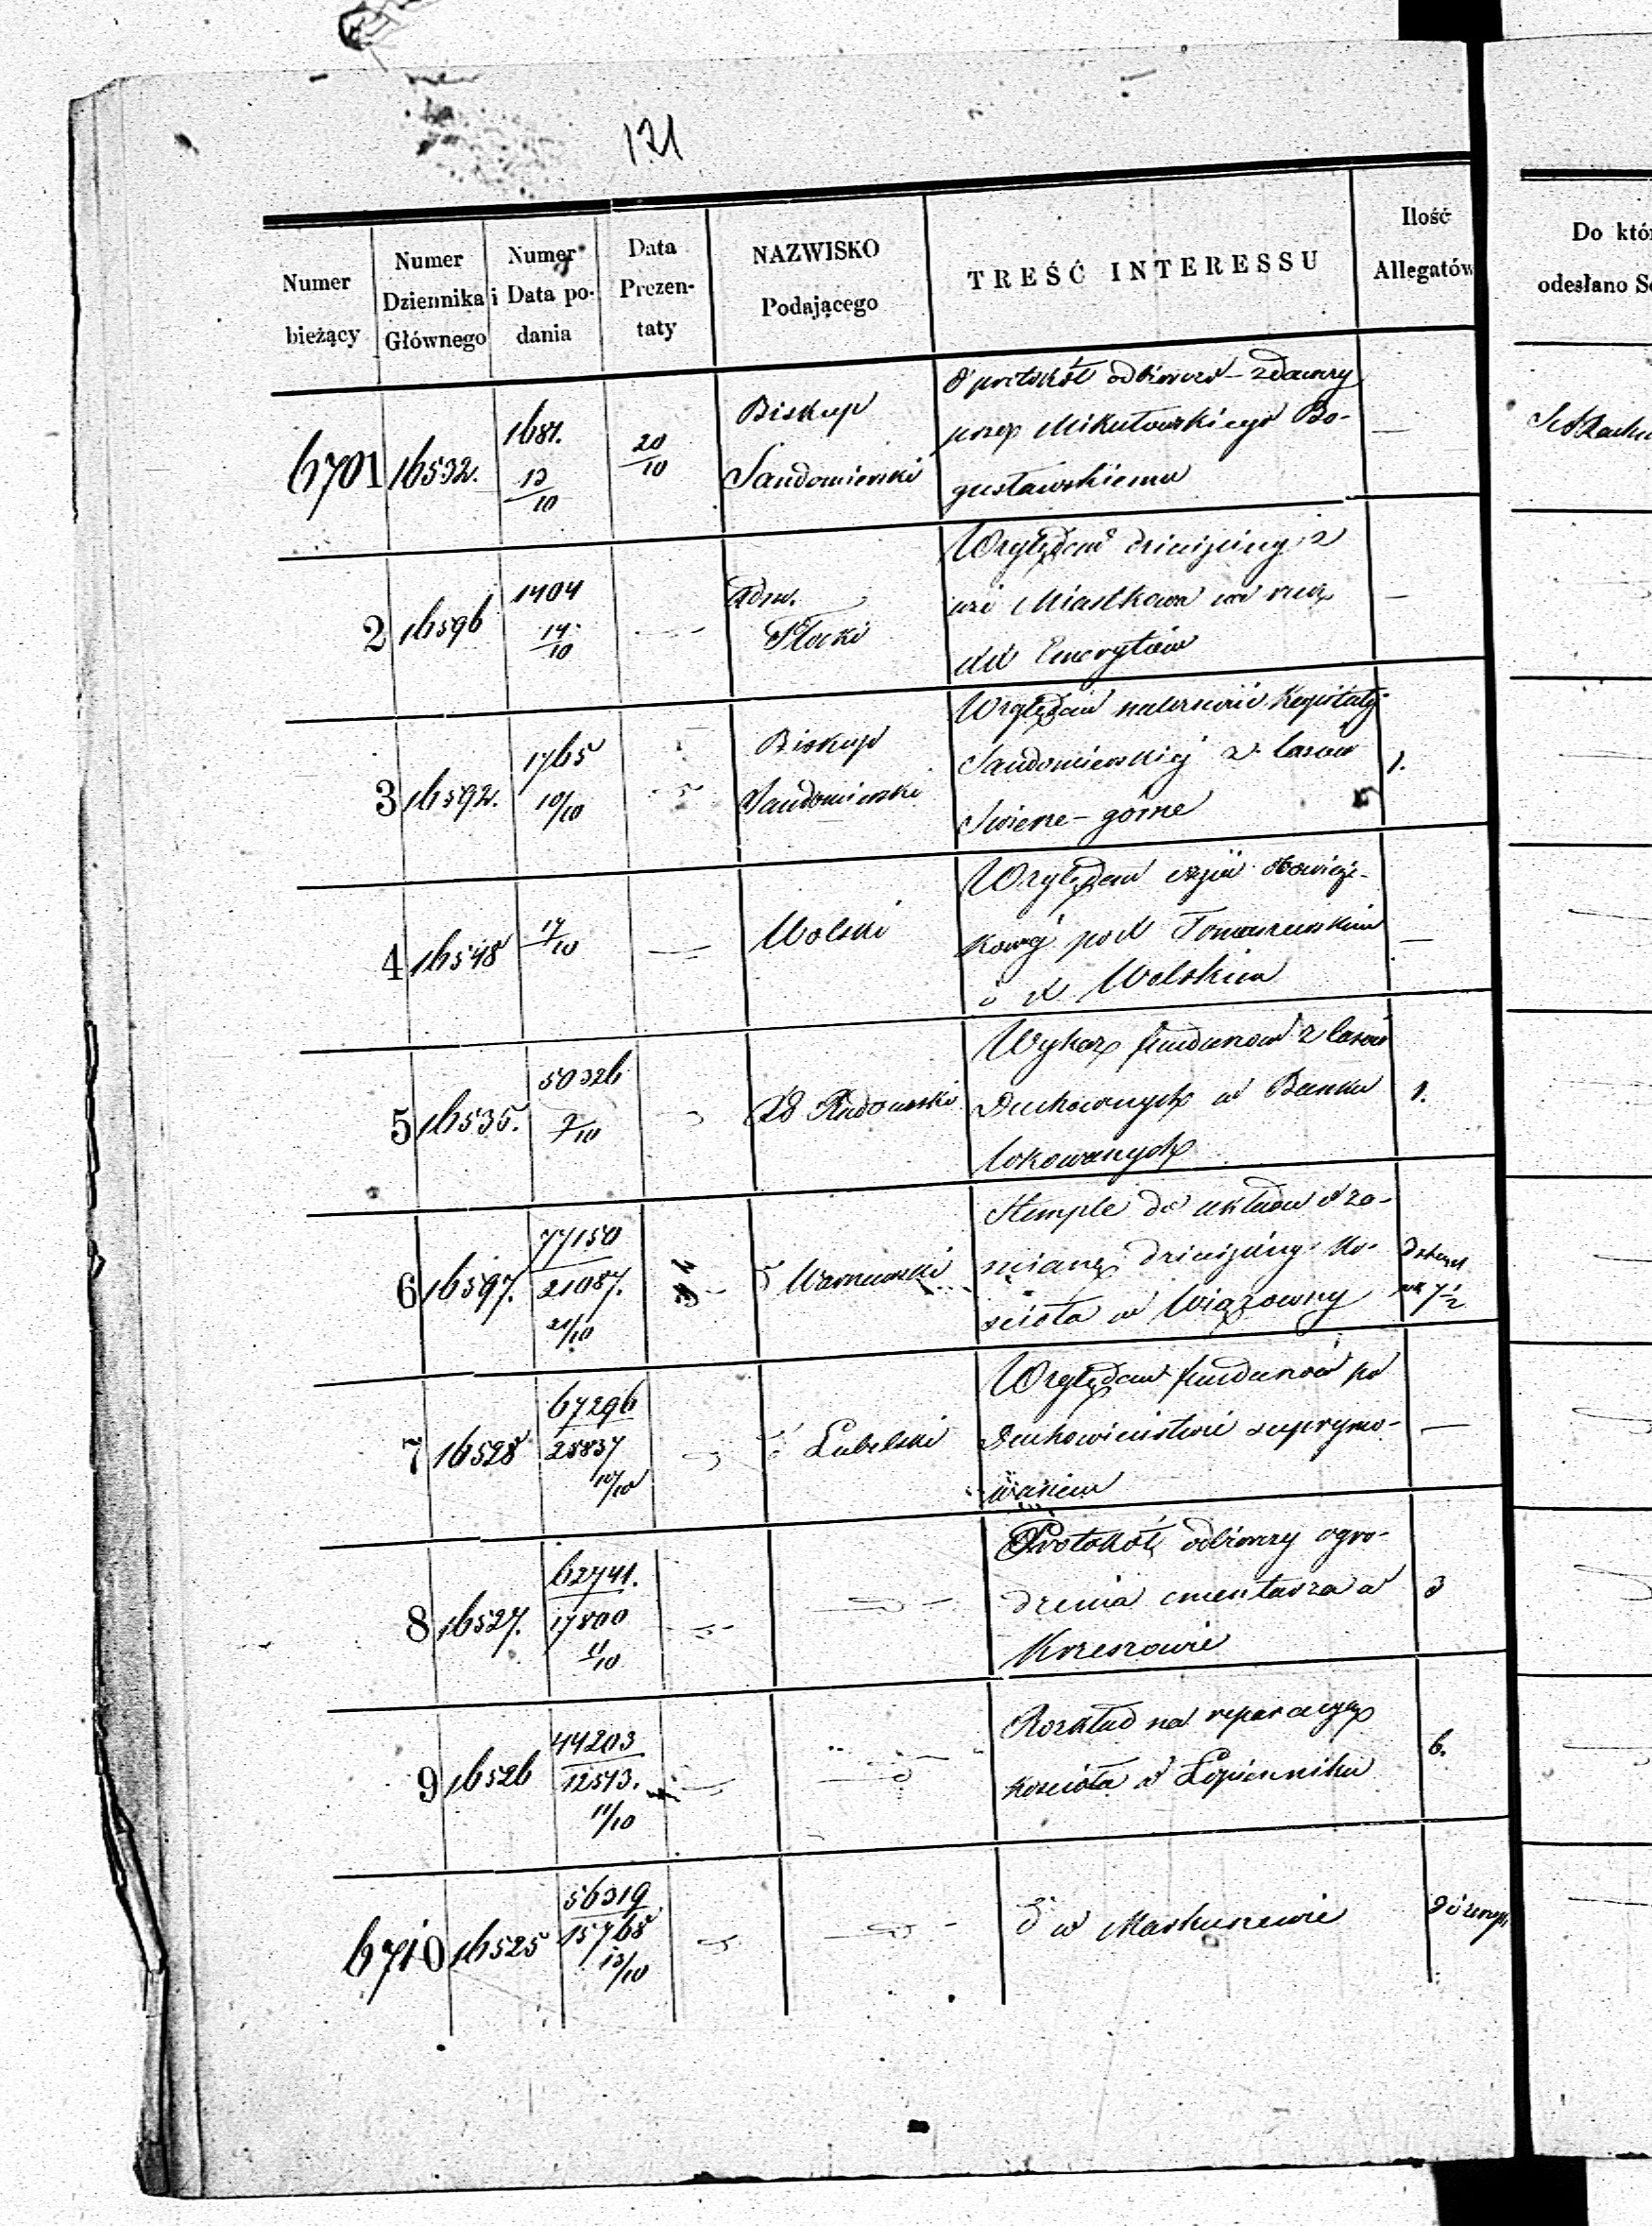 121
Numer bieżący
Numer Dziennika Głównego
Numer i Data podania
Data Prezentaty
NAZWISKO Podającego
TREŚĆ INTERESSU
Ilość Allegatów
Do któ
odesłano Se
6701 16532. 1681. 13/10 20/10
Biskup
Sandomierski
O protokół odbiorczo-zdawczy
przez Mikułowskiego Bo-
gusławskiemu
—
2 16596 1404 14/10
Adm.
Płocki
Względem dziesięciny z
wsi Miastkowa na rzecz
XX Emerytów
—
3 16592. 1765 10/10
Biskup
Sandomierski
Względem należności Kapituły
Sandomierskiej z lasów
Swiente-górne
1.
4 16548 17/10
Wolski
Względem
pod Tomaszewskim
i X Wolskim
—
5 16535. 50326 7/10
Radomski
Wykaz funduszów z lasów
Duchownych w Banku
lokowanych
1.
6 16597. 77150 21087. 21/10
Warszawski
Stemple do układu o za-
mianę dziesięciny ko-
scioła w Wiązowny
7 1/2
7 16528 67296 25837 10/10
Lubelski
Względem funduszów po
Duchowieństwie suprymo-
wanem
—
8 16527. 62741. 17800 11/10
Protokół odbiorczy ogro-
dzenia cmentarza w
Krzeszowie
3
9 16526 44203 12513. 11/10
Rozkład na reparacyę
kościoła w Łopienniku
6.
6710 16525 56319 15768 13/10
w Markuszewie